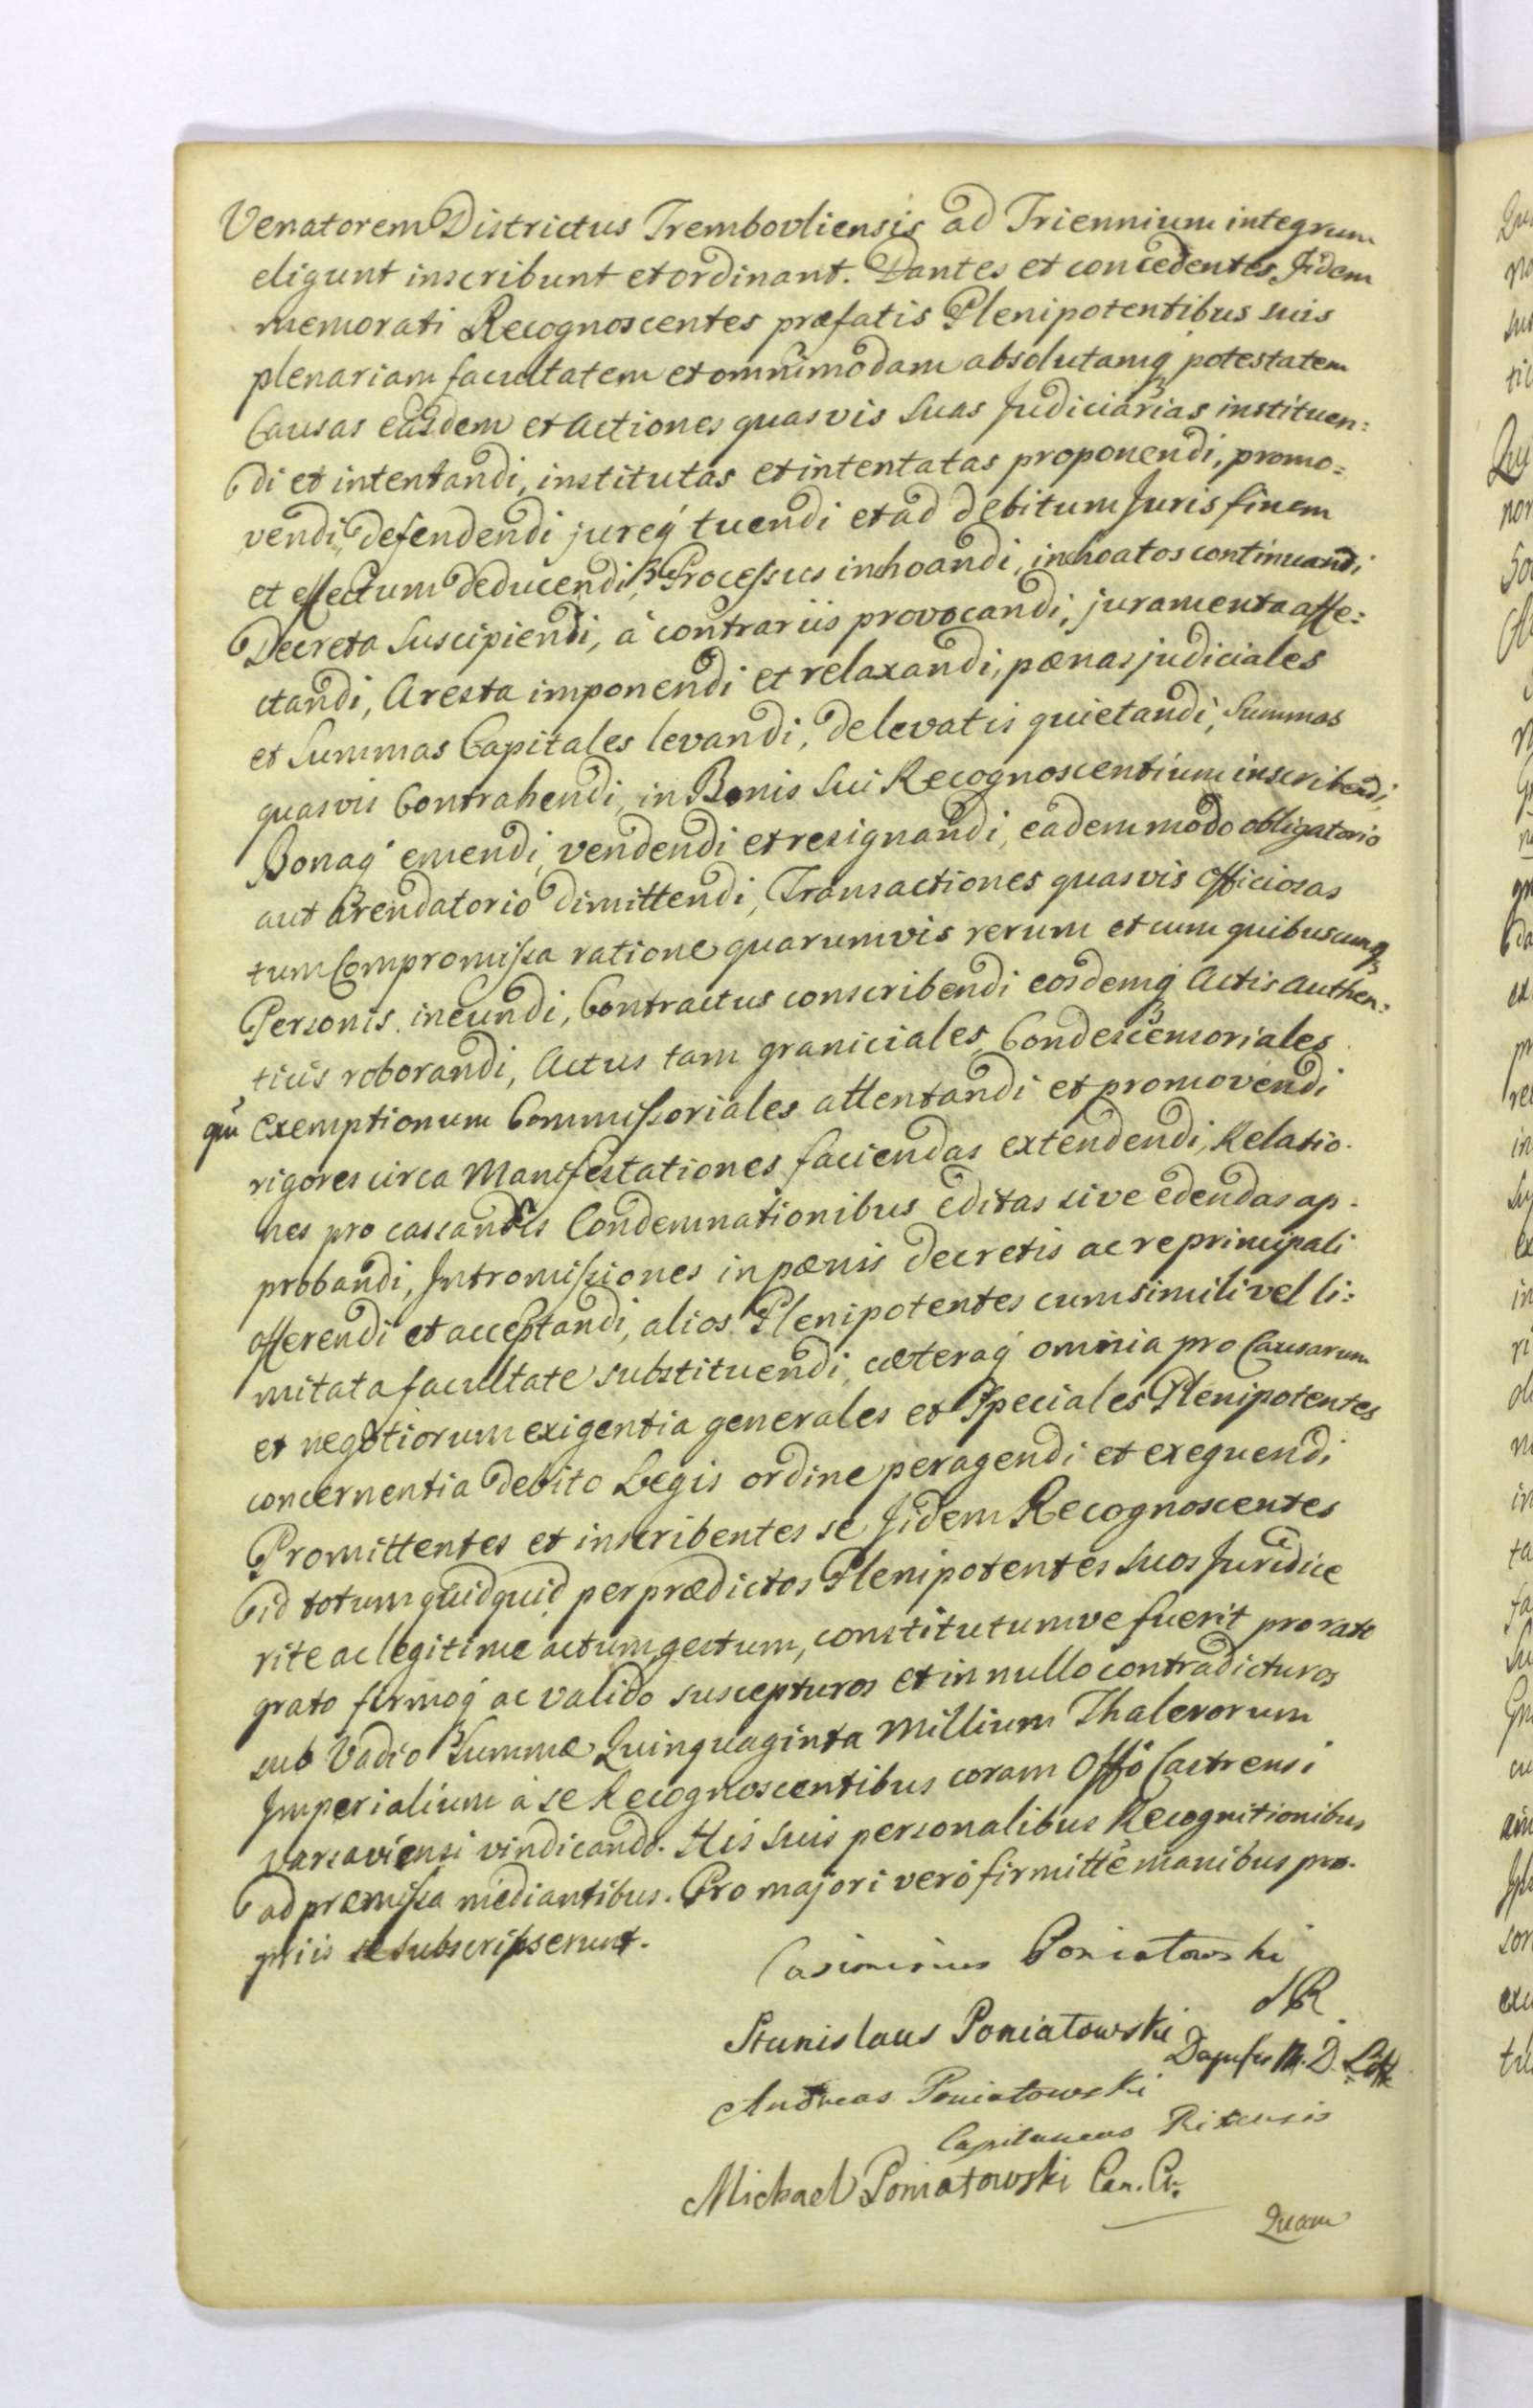 Venatorem Districtus Trembovliensis ad Triennium integrum
eligunt inscribunt et ordinant. Dantes et concedentes Jidem
memorati Recognoscentes præfatis Plenipotentibus suis
plenariam facultatem et omnimodam absolutamq potestatem
Causas easdem et Actiones quasvis suas Judiciarias instituen:
di et intentandi, institutas et intentatas proponendi, promo=
vendi, defendendi jureq tuendi et ad debitum Juris finem
et effectum deducendi, Processus inhoandi, inhoatos continuandi
Decreta suscipiendi, à contrariis provocandi, juramenta affe:
ctandi, Aresta imponendi et relaxandi, pænas judiciales
et Summas Capitales levandi, de levatis quietandi, Summas
quasvis Contrahendi, in Bonis sui Recognoscentium inscribendi,
Bonaq emendi, vendendi et resignandi, eadem modo obligatorio
aut Arendatorio dimittendi, Transactiones quasvis officiosas
tum Compromissa ratione quarumvis rerum et cum quibuscunq
Personis ineundi, Contractus conscribendi eosdemq Actis Authen:
ticis roborandi, Actus tam graniciales, Condescensoriales
qu Exemptionum Commissoriales attentandi et promovendi
rigores circa Manifestationes faciendas extendendi, Relatio-
nes pro cassandis Condemnationibus editas sive edendas ap-
probandi, Intromissiones in pænis decretis ac re principali
offerendi et acceptandi, alios Plenipotentes cum simili vel li:
mitata facultate substituendi, cæteraq omnia pro Causarum
et negotiorum exigentia generales et Speciales Plenipotentes
concernentia debito Legis ordine peragendi et exequendi
Promittentes et inscribentes se Jidem Recognoscentes
id totum quidquid per prædictos Plenipotentes suos Juridice
rite ac legitime actum, gestum, constitutumve fuerit pro rato
grato firmoq ac valido suscepturos et in nullo contradicturos
sub Vadio Summæ Quinquaginta Millium Thalerorum
Imperialium à se Recognoscentibus coram Offö Castrensi
Varsaviensi vindicando. His suis personalibus Recognitionibus
ad præmissa mediantibus. Pro majori verò firmitte manibus pro-
priis se subscripserunt.
Casimirus Poniatowski
Stanislaus Poniatowski
Dapifer M. D. Litt
Andreas Poniatowski
Capitaneus
Michael Poniatowski Can. Cr.
Quam